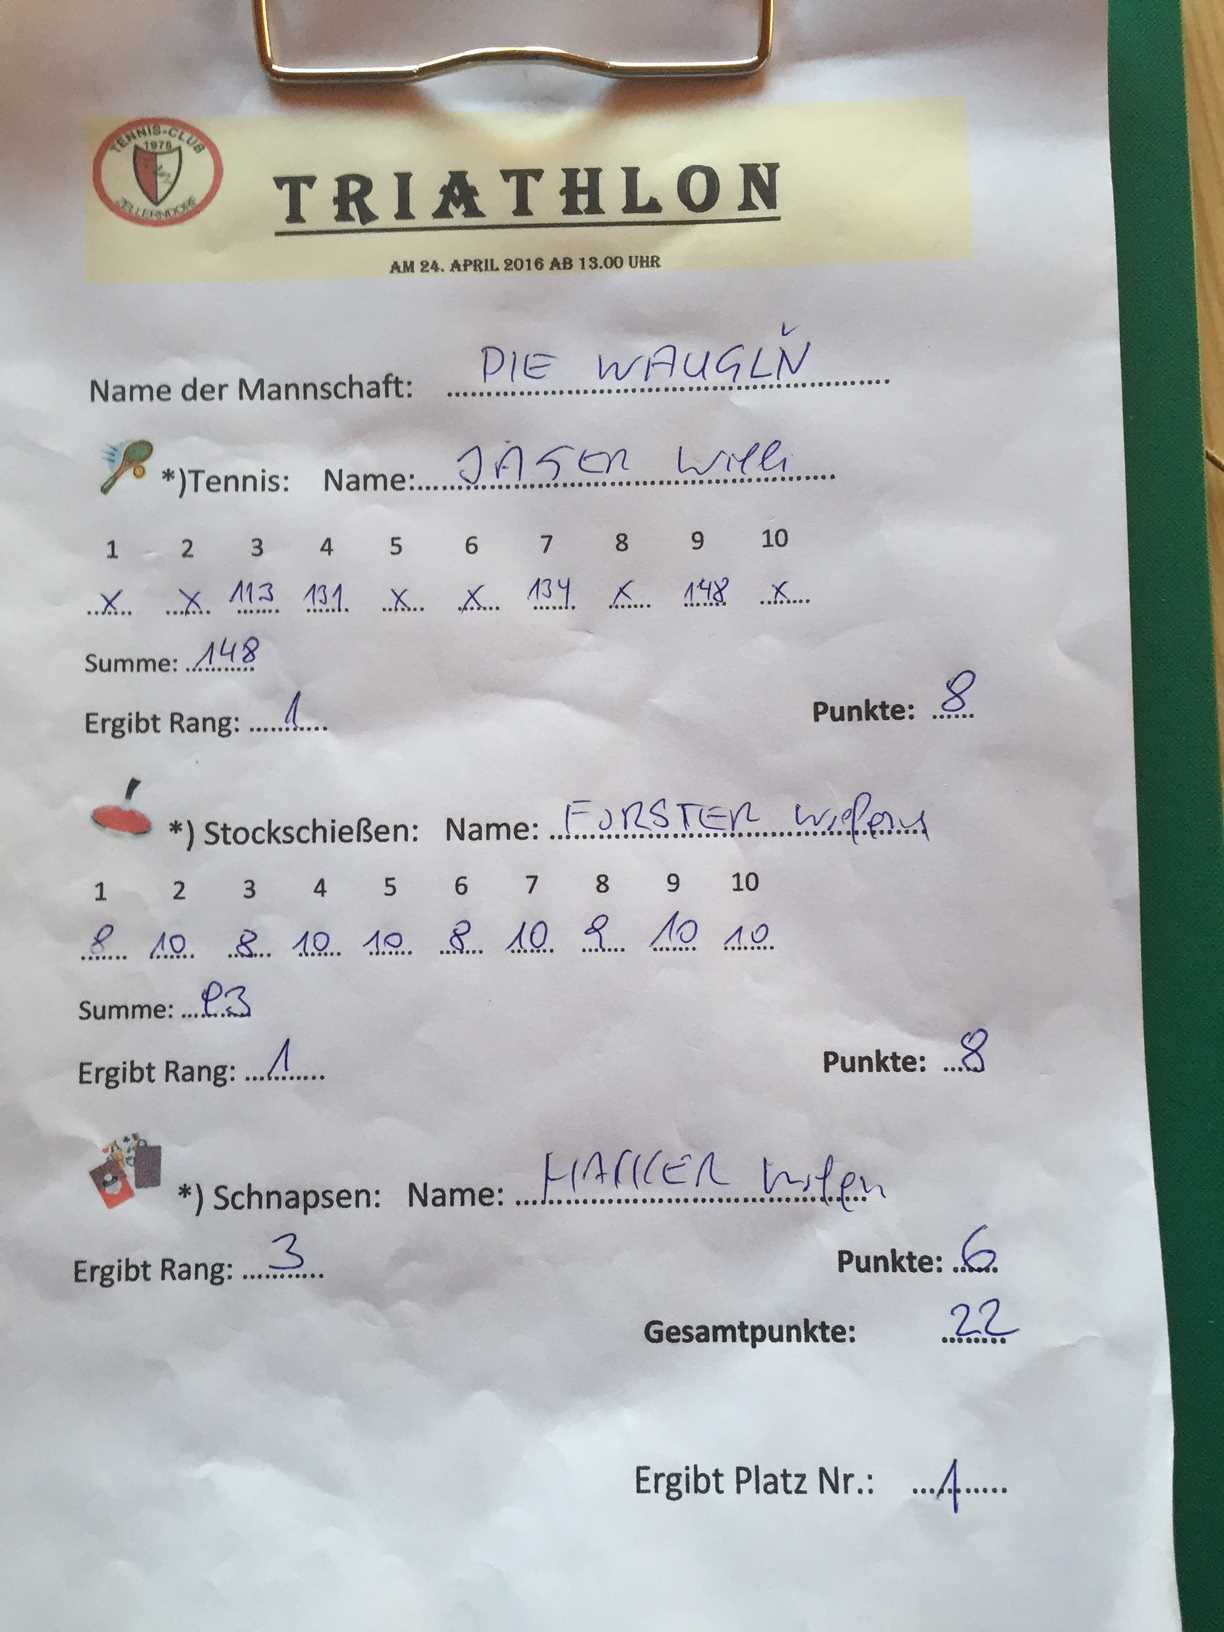 TENNIS-CLUB
1975
ZELLERNDORF
TRIATHLON
AM 24. APRIL 2016 AB 13.00 UHR
Name der Mannschaft: DIE WAUGLŇ
*)Tennis: Name: JÄGER Willi
1 2 3 4 5 6 7 8 9 10
X X 113 131 X X 134 X 148 X
Summe: 148
Ergibt Rang: 1 Punkte: 8
*) Stockschießen: Name: FORSTER
1 2 3 4 5 6 7 8 9 10
8 10 8 10 10 8 10 9 10 10
Summe: 93
Ergibt Rang: 1 Punkte: 8
*) Schnapsen: Name:
Ergibt Rang: 3 Punkte: 6
Gesamtpunkte: 22
Ergibt Platz Nr.: 1